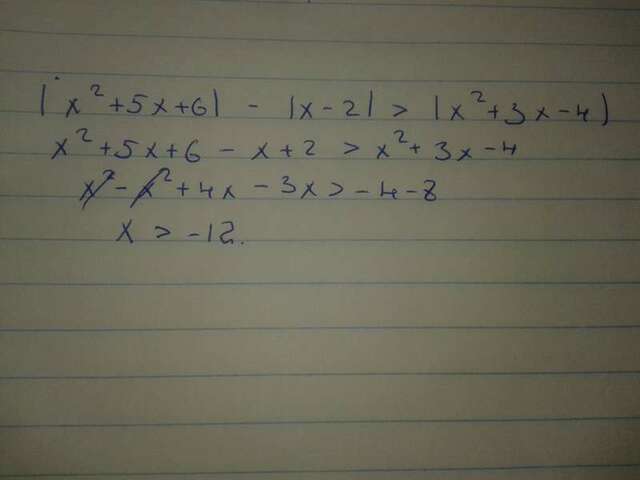 |x²+5x+6| - |x-2| > |x²+3x-4|
x²+5x+6 - x+2 > x²+3x-4
x²-x²+4x-3x>-4-8
x > -12.